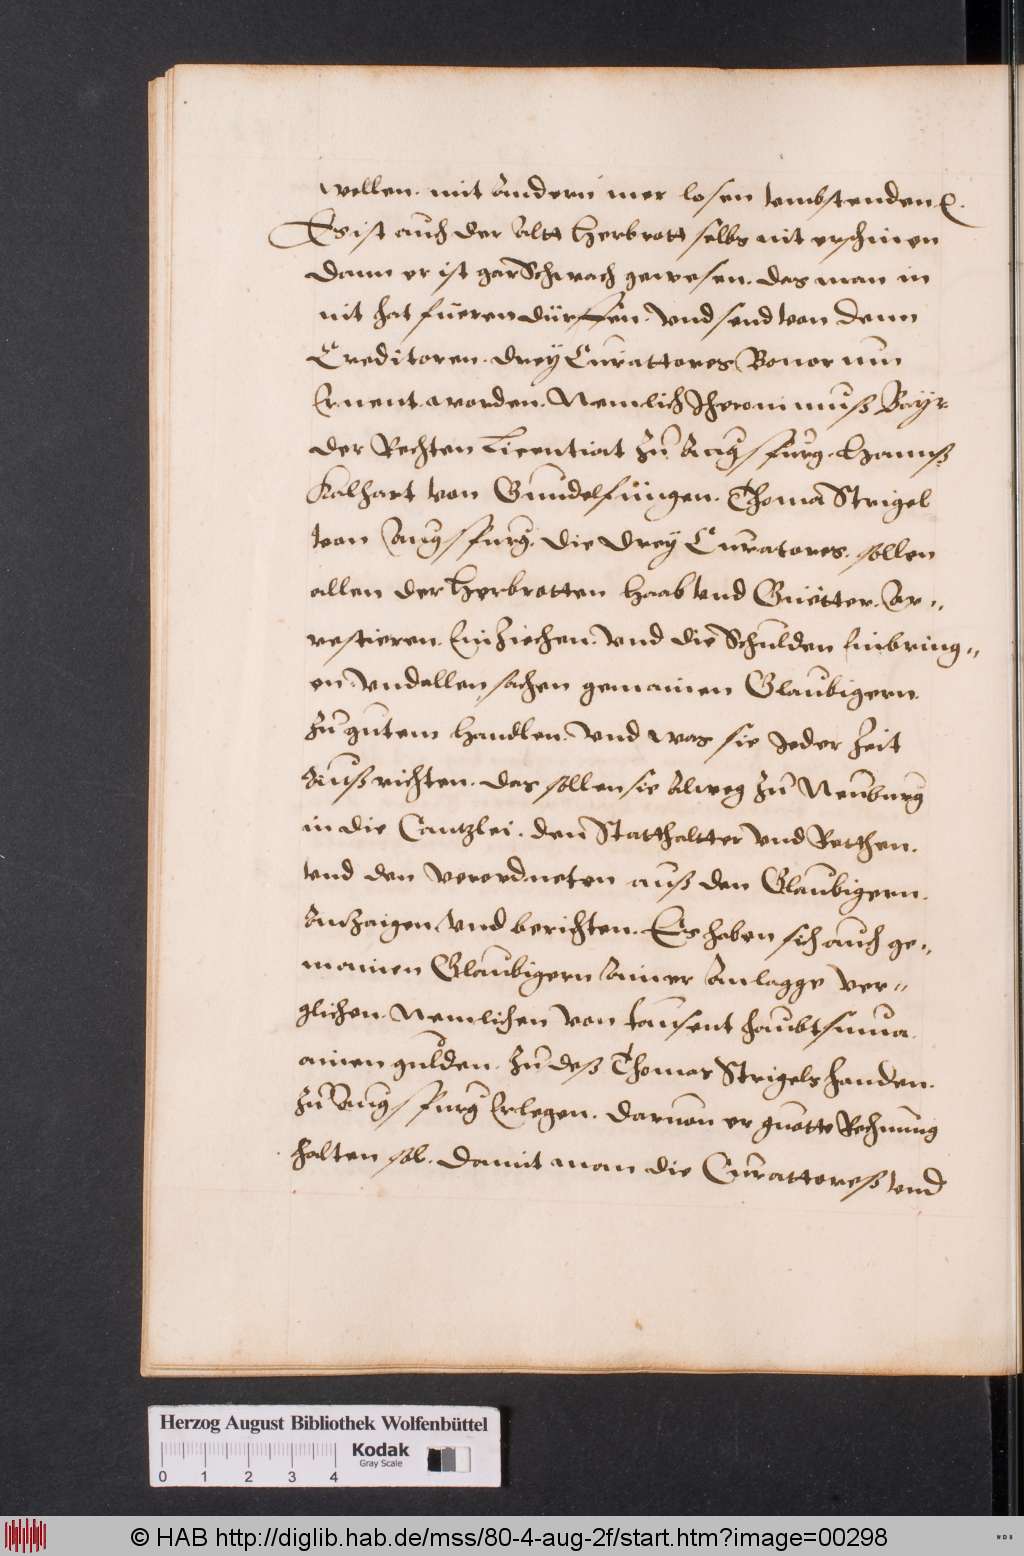 wellen. mit andern mer losen vmbstenden ꝛc.
Es ist auch der Altt Herbrott selbs nit erschinen
dann er ist gar Schwach gewesen. das man in
nit hat füeren dürffen. Vnd send von denn
Creditoren. drey Curattores Bonorum
Ernent worden. Nemlich Jheronimmuß Bayr
der Rechten Licentiat zu Augspurg. Hannß
Kalhart von Gundelfüngen. Thoma Strigel
von Augspurg. die drey Curatores. sollen
allen der Herbrotten haab vnd Guetter. Ar"
restieren. Einziechen. Vnd die Schulden Einbring"
en. Vnd allen sachen gemainen Glaubigern.
zu gutem handlen. Vnd was sie Jeder Zeit
Außrichten. das sollen sie Alweg zu Neuburg
in die Cantzlei. den Statthaltter Vnd Retthen.
vnd den verordneten auß den Glaubigern.
Anzaigen Vnd berichten. Es haben sich auch ge"
mainen Glaubigern Ainer Anlagge ver"
glichen. Nemlichen von tausent haubtsuma.
ainen gulden. zu deß Thomas Strigels handen.
zu Augspurg Erlegen. daruon er guotte Rechnung
halten sol. damit man die Curattoreß vnd
Herzog August Bibliothek Wolfenbüttel
Kodak
Gray Scale
0 1 2 3 4
© HAB http://diglib.hab.de/mss/80-4-aug-2f/start.htm?image=00298